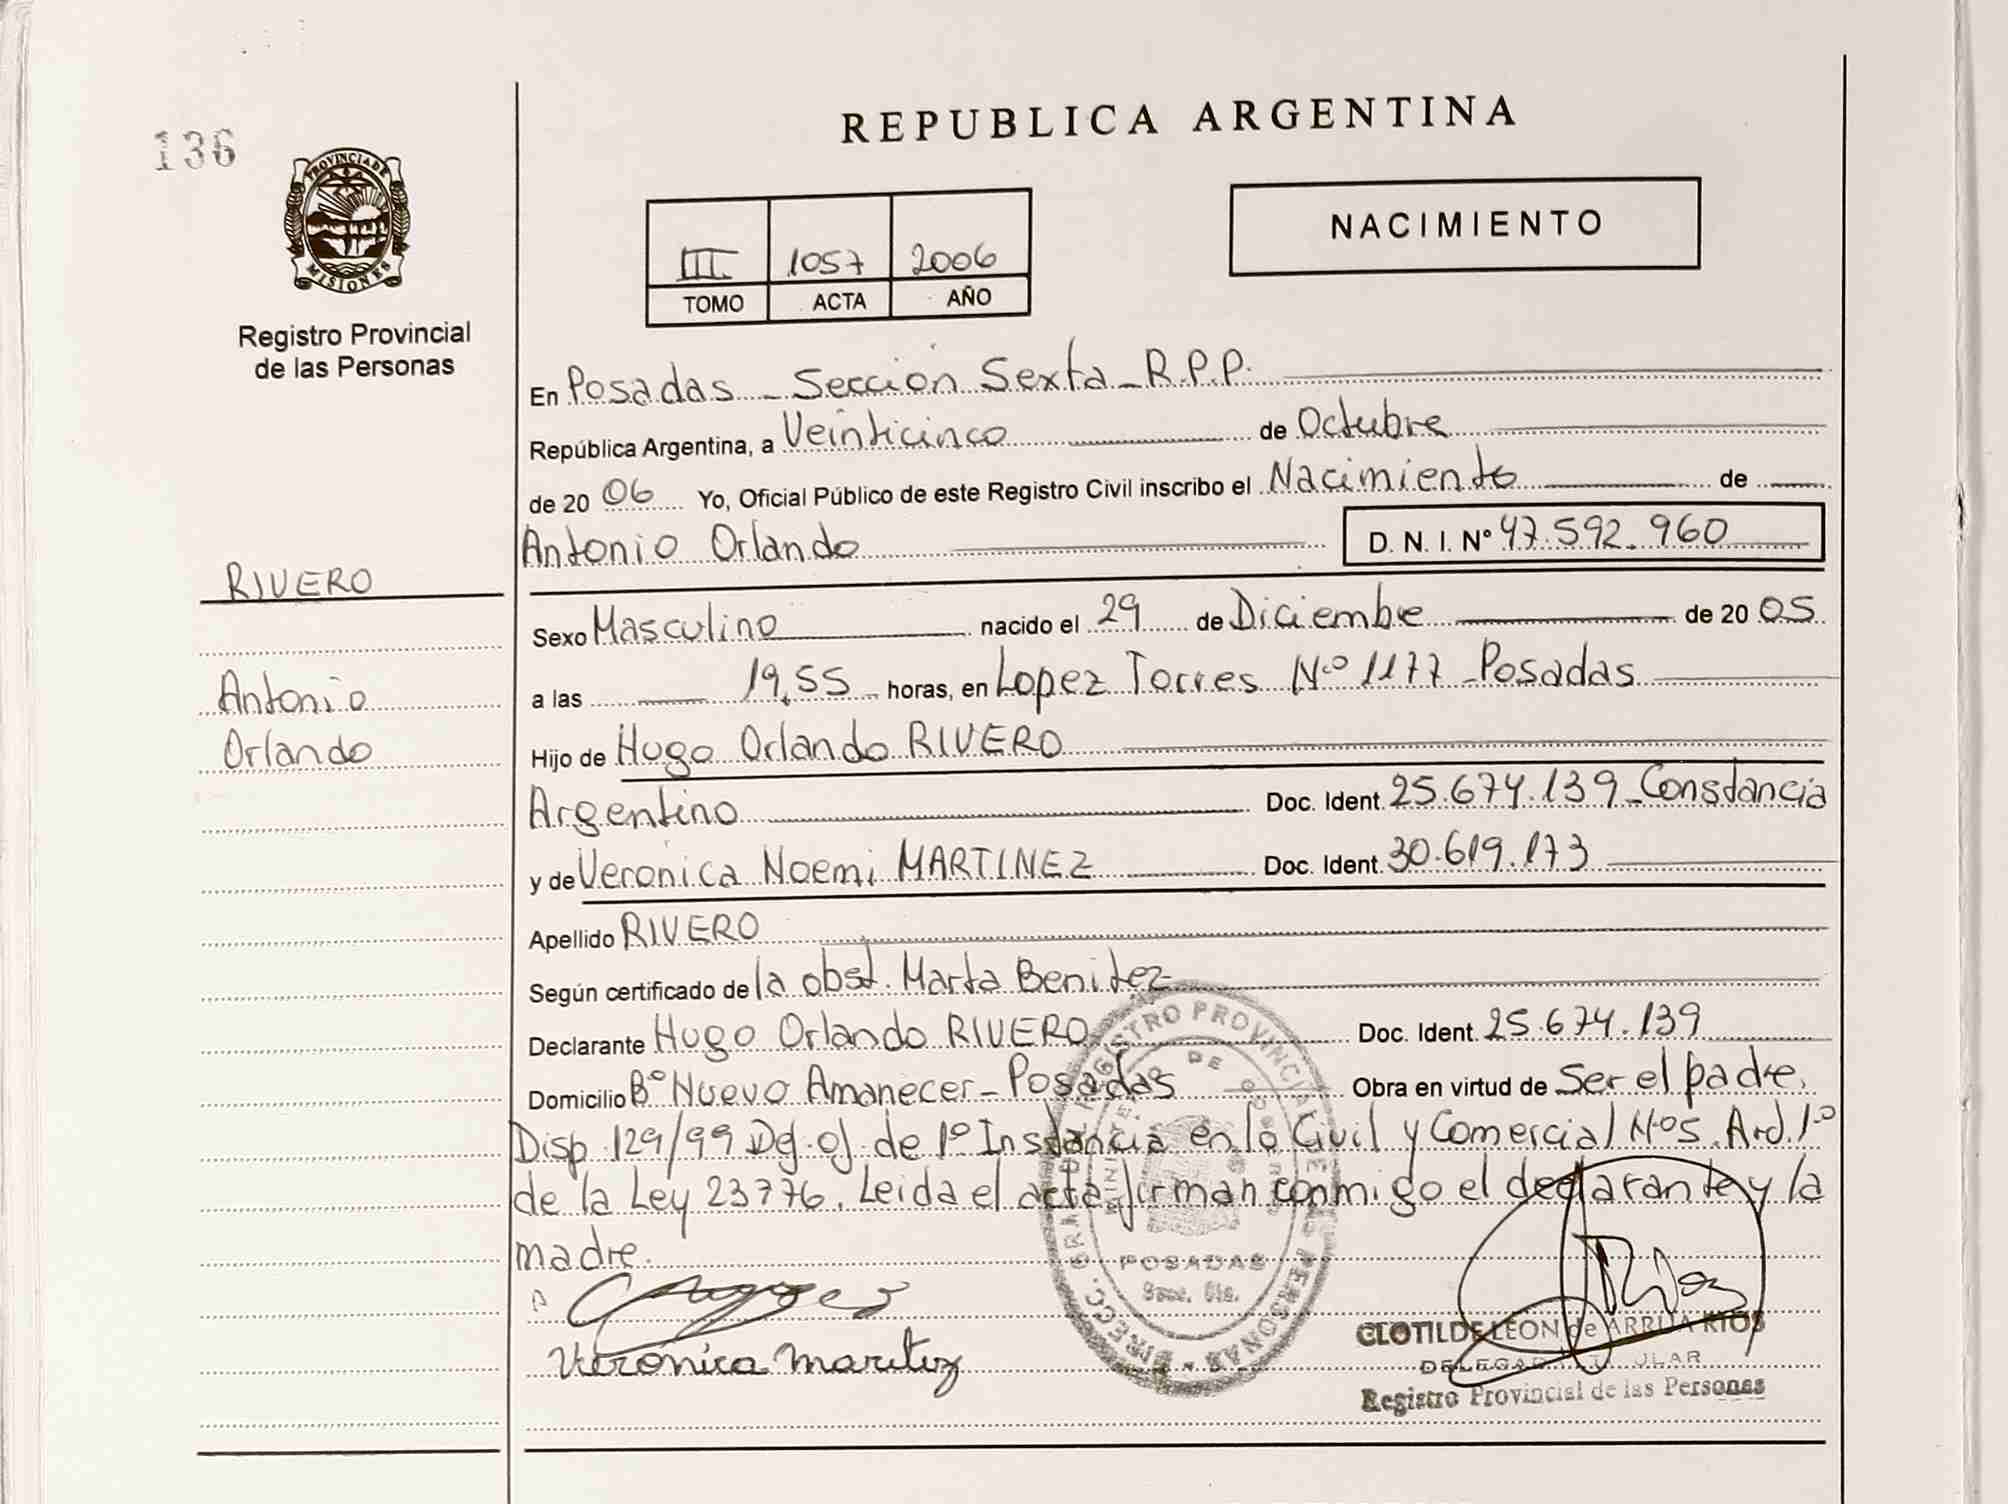 136
PROVINCIA DE
MISIONES
Registro Provincial
de las Personas
REPUBLICA ARGENTINA
III 1057 2006
TOMO ACTA AÑO
NACIMIENTO
En Posadas - Sección Sexta - R.P.P.
República Argentina, a Veinticinco de Octubre
de 20 06 Yo, Oficial Público de este Registro Civil inscribo el Nacimiento de
Antonio Orlando D. N. I. Nº 47.592.960
RIVERO
Sexo Masculino nacido el 29 de Diciembre de 20 05
Antonio
a las 19,55 horas, en Lopez Torres Nº 1177 - Posadas
Orlando
Hijo de Hugo Orlando RIVERO
Argentino Doc. Ident. 25.674.139 - Constancia
y de Veronica Noemi MARTINEZ Doc. Ident. 30.619.173
Apellido RIVERO
Según certificado de la obst. Marta Benitez
Declarante Hugo Orlando RIVERO Doc. Ident. 25.674.139
Domicilio Bº Nuevo Amanecer - Posadas Obra en virtud de Ser el padre.
Disp. 129/99 Def. of. de 1º Instancia en lo Civil y Comercial Nº5. Art. 1º
de la Ley 23776. Leida el acta firman conmigo el declarante y la
madre.
Veronica
POSADAS
CLOTILDE LEON de ARRUA RIOS
Registro Provincial de las Personas